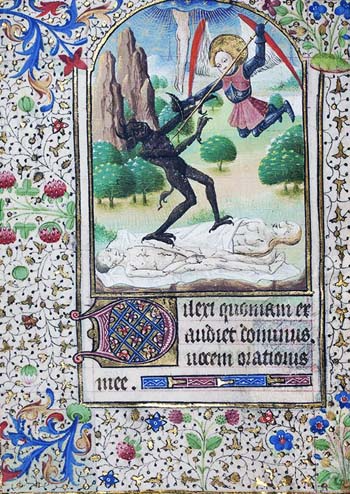 Dilexi quoniam ex
audiet dominus.
vocem orationis
mee.